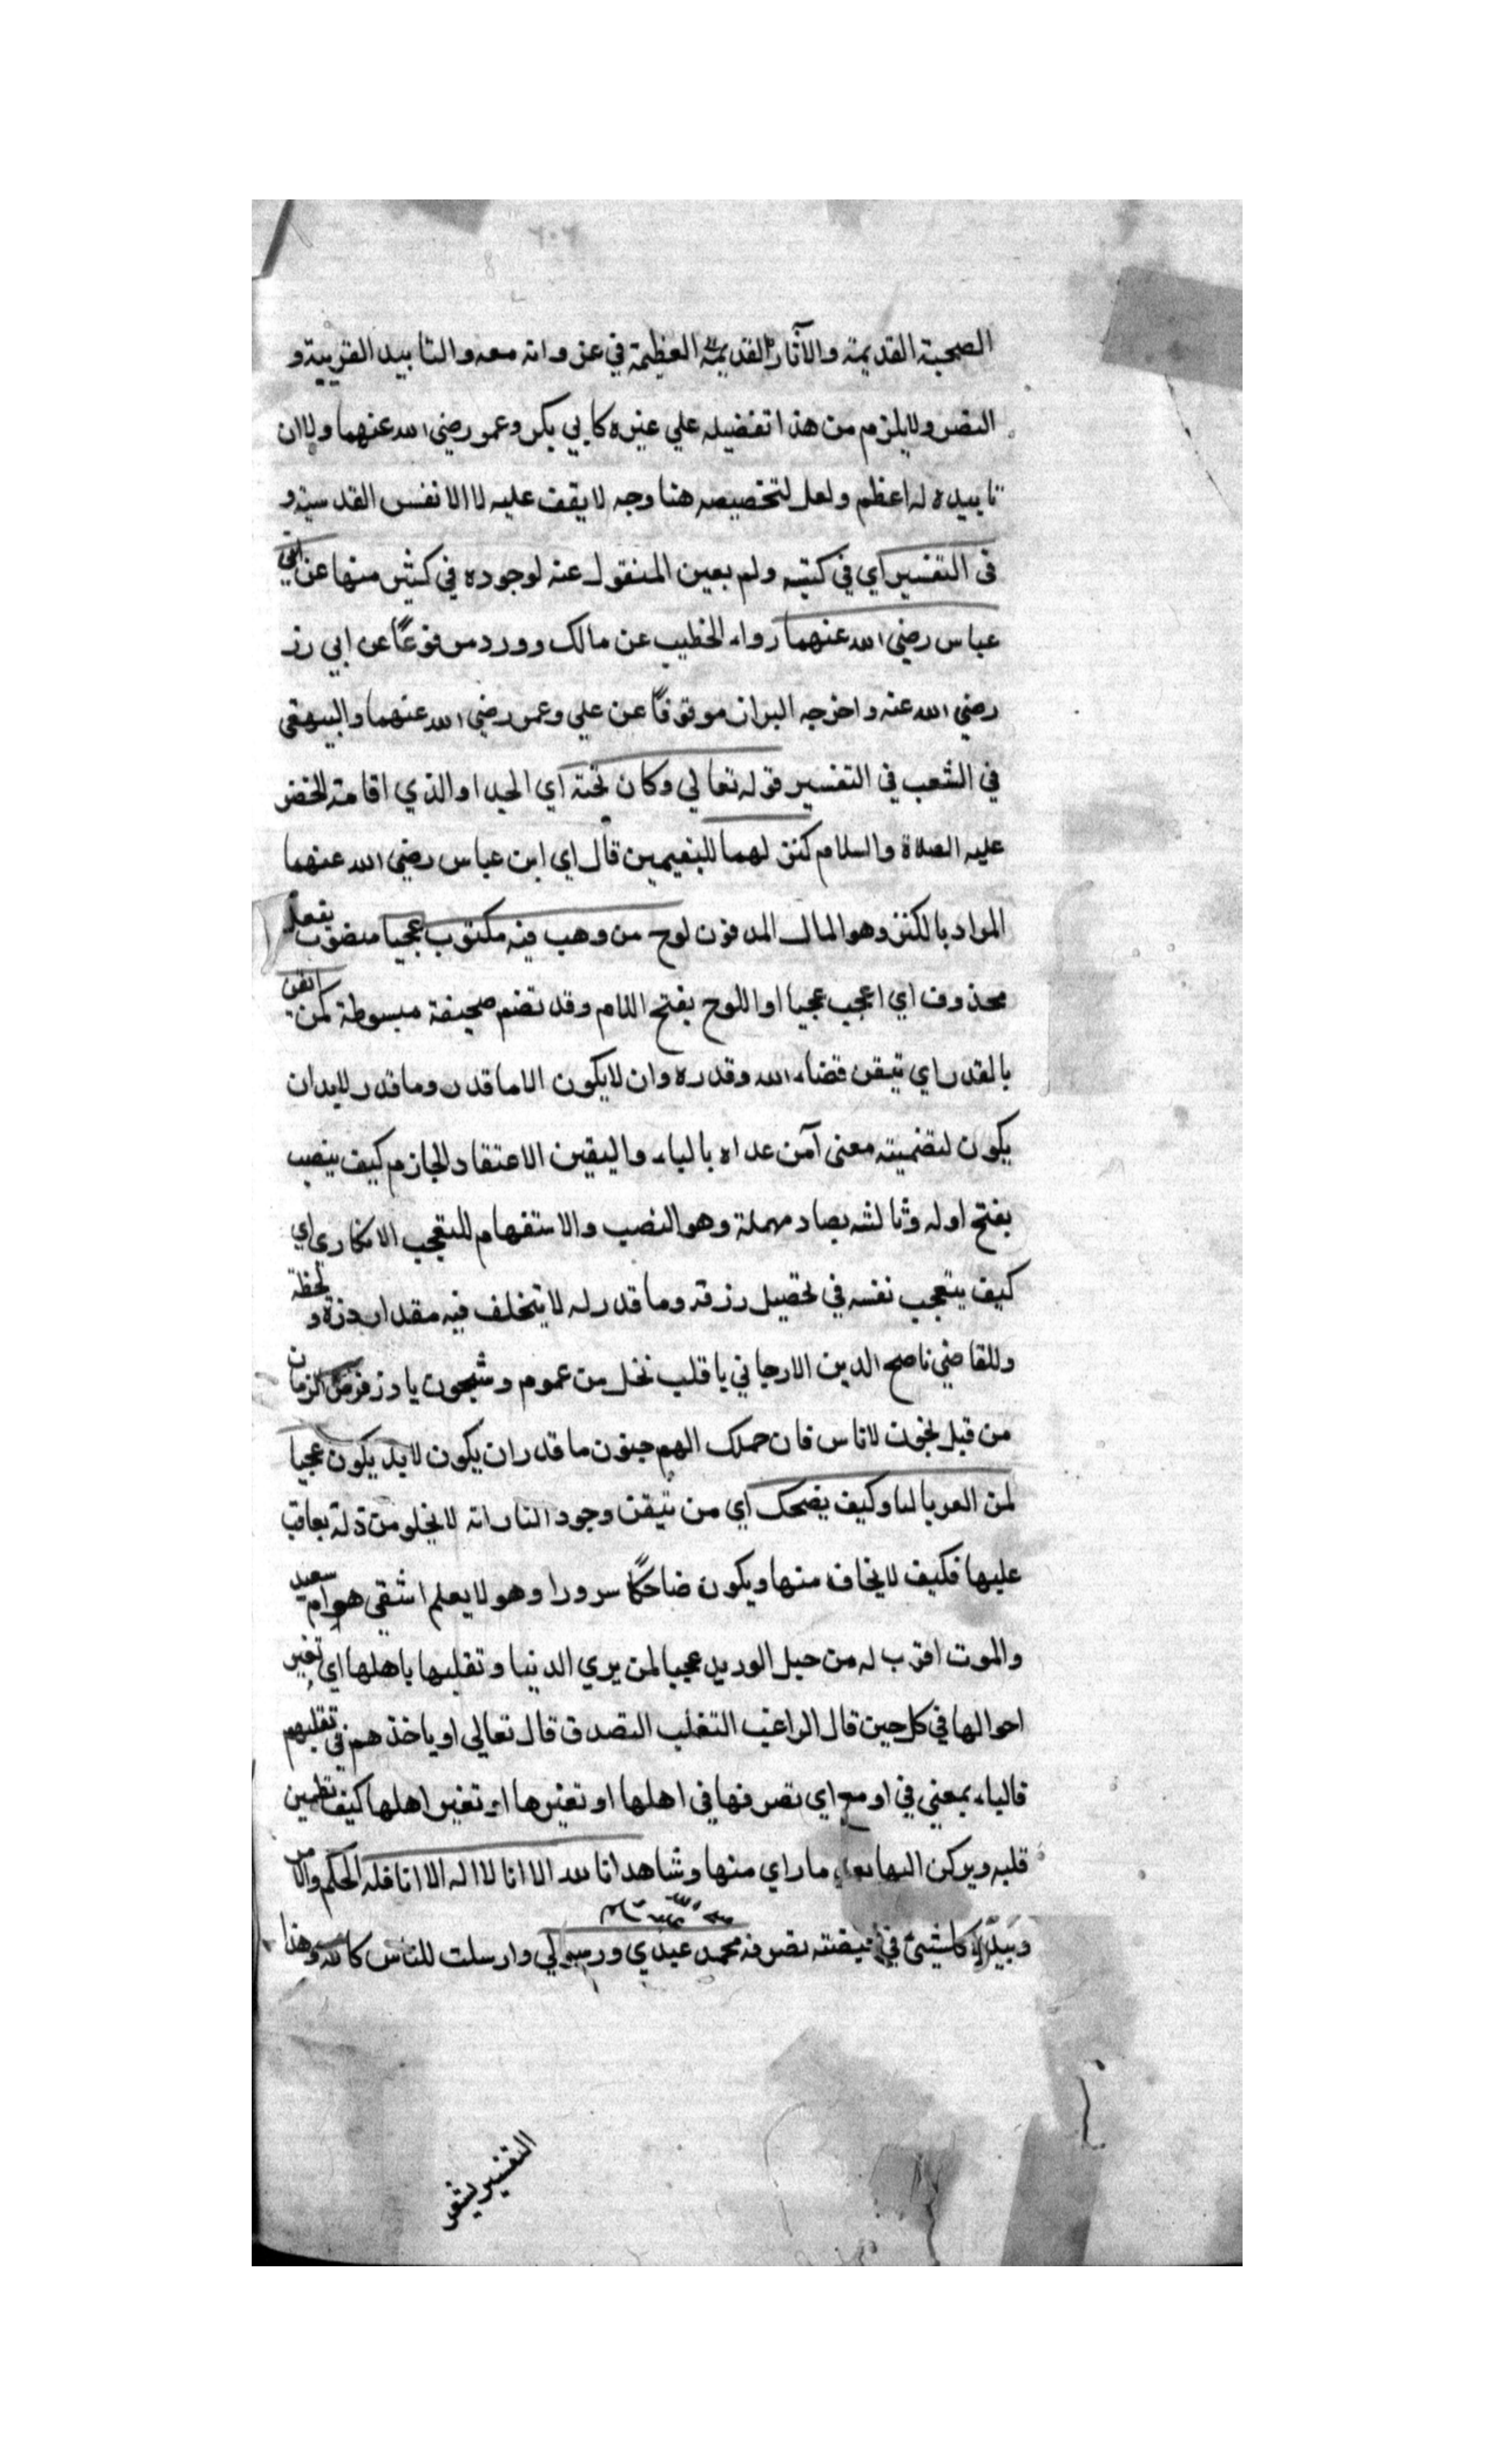 الصحبة القديمة والاثار القديمة العظيمة في غزواته معه والتاييد القريبة و
النصر ولا يلزم من هذا تفضيله علي غيره كابي بكر وعمر رضي الله عنهما ولا ان
تاييده له اعظم ولعل لتخصيصه هنا وجه لا يقف عليه الا الانفس القدسية و
في التفسير اي في كتبه ولم يعين المنقول عنه لوجوده في كثير منها عن ابن
عباس رضي الله عنهما رواه الخطيب عن مالك وورد مرفوعًا عن ابي ذر
رضي الله عنه واخرجه البزار موقوفًا عن علي وعمر رضي الله عنهما والبيهقي
في الشعب في التفسير قوله تعالي وكان تحته اي الجدار الذي اقامه الخضر
عليه الصلاة والسلام كنز لهما لليتيمين قال اي ابن عباس رضي الله عنهما
المراد بالكنز وهو المال المدفون لوح من ذهب فيه مكتوب عجبا منصوب بفعل
محذوف اي اعجب عجبا او اللوح بفتح اللام وقد تضم صحيفة مبسوطة لمن ايقن
بالقدر اي تيقن قضاء الله وقدره وان لا يكون الا ما قدر وما قدر لابد ان
يكون لتضمينه معني آمن عداه بالباء واليقين الاعتقاد الجازم كيف ينصب
بفتح اوله وثالثه بصاد مهملة وهو النصب والاستفهام للتعجب الانكاري اي
كيف يتعجب نفسه في تحصيل رزقه وما قدر له لا يتخلف فيه مقدار ذرة و لحظة
وللقاضي ناصح الدين الارجاني يا قلب نخل من عموم وشجون يا دز الزمان
من قبل يخون لا تاس فان حملك الهم جنون ما قدر ان يكون لابد يكون عجبا
لمن وكيف يضحك اي من تيقن وجود النار انه لا يخلو من ذلة يعاقب
عليها فكيف لا يخاف منها ويكون ضاحكًا سرورا وهو لا يعلم اشقي هو ام سعيد
والموت اقرب له من حبل الوريد عجبا لمن يري الدنيا وتقلبها باهلها اي تغير
احوالها في كل حين قال الراغب التقلب التصرف قال تعالي او ياخذهم في تقلبهم
فالباء بمعني في او مع اي تصرفها في اهلها او تغيرها او تغير اهلها كيف تطمئن
قلبه ويركن اليها ما راي منها وشاهد انا الله الا انا لا اله الا انا فله الحكم والامر
وبيده كل شيئ في قبضته تصرفه محمد عبدي ورسولي وارسلت للناس كافة وهذا
التفسير يشعر